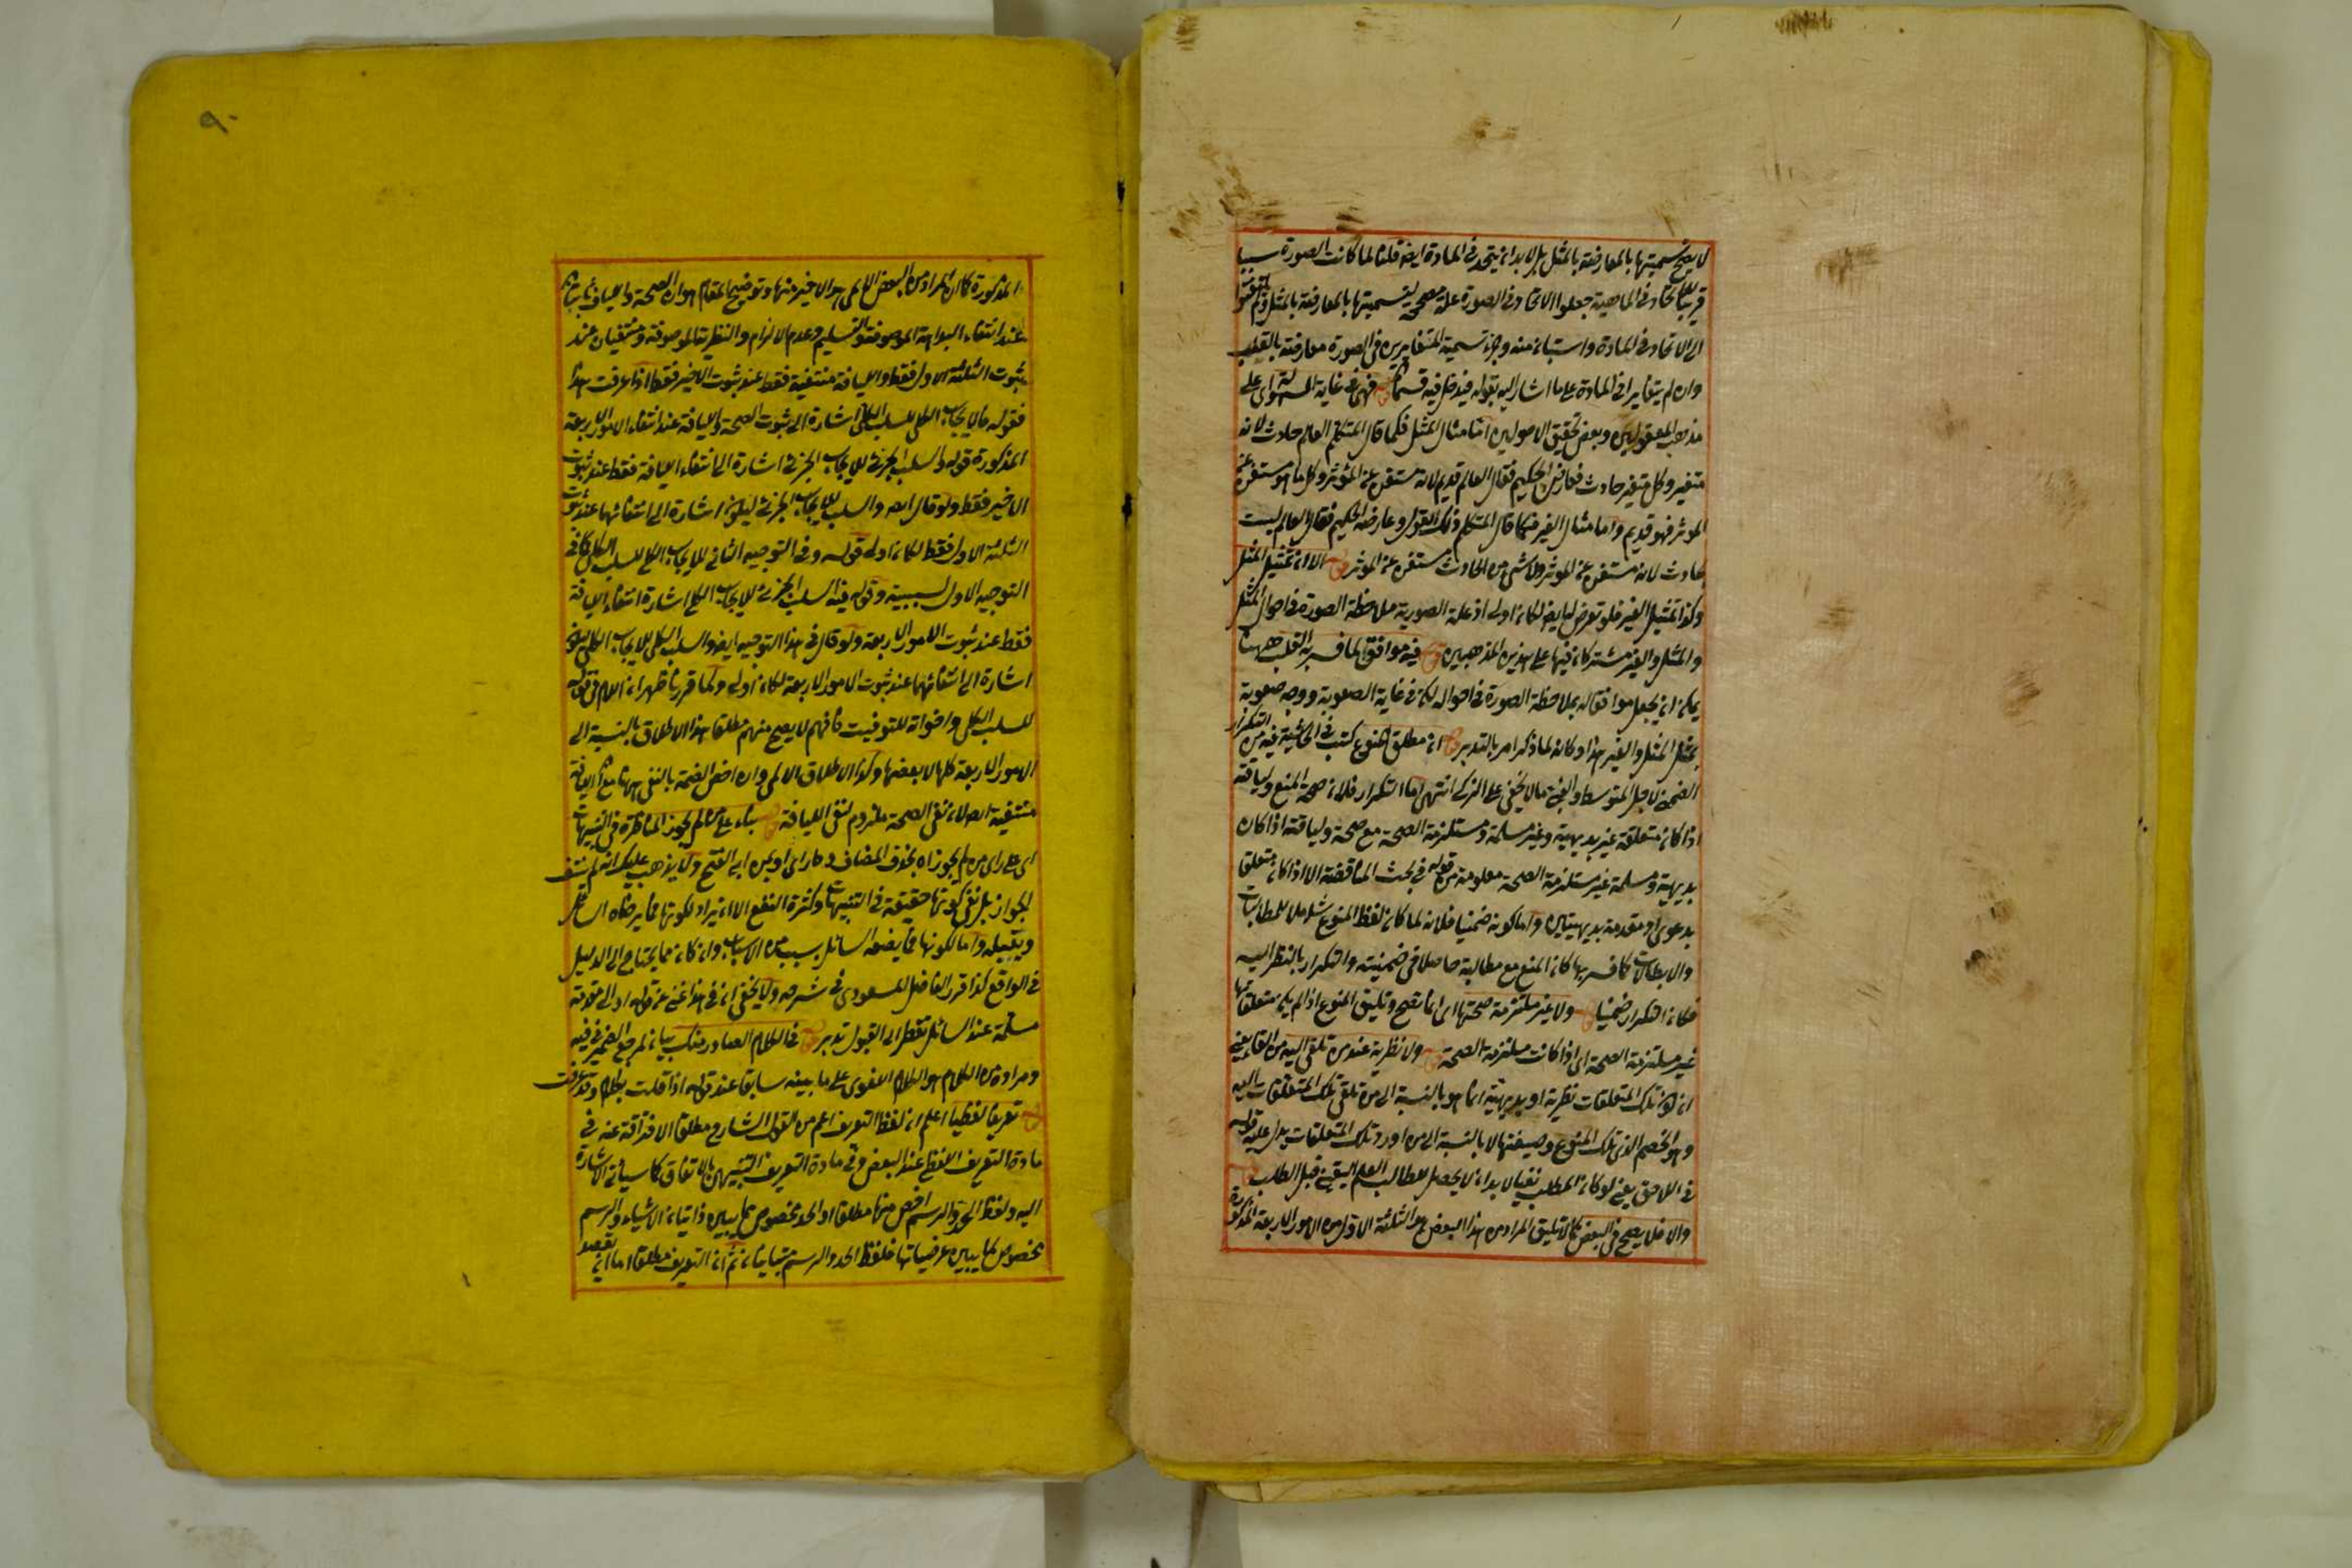 لا يصح تسميتها بالمعارضة بالمثل بل لا بد ان يتحد في المادة ايضا قلنا لما كانت الصورة سببا
قريبا للاتحاد في الماهية جعلوا الاتحاد في الصورة علة مصححة لتسميتها بالمعارضة بالمثل
الى الاتحاد في المادة واستباء منه وجه تسمية المتغايرين في الصورة معارضة بالقلب
وان لم يتغايرا في المادة على ما اشار اليه بقوله فيدخل فيه قسما فهي في غاية السهولة اى على
مذهب المعقوليين وبعض تحقيق الاصوليين اما مثال المثل فكما قال المتكلم العالم حادث لانه
متغير وكل متغير حادث فعارض الحكيم فقال العالم قديم لانه مستغن عن المؤثر وكل ما هو مستغن عن
المؤثر فهو قديم واما مثال الغير فكما قال المتكلم ذلك القول وعارضه الحكيم فقال العالم ليست
حادث لانه مستغن عن المؤثر ولا شئ من الحادث مستغن عن المؤثر الا ان تمثيل المثل
وكذا تمثيل الغير فلو تعرض لها ايضا لكان اولى اذ علة الصورية ملاحظة الصورة في احوال المثل
والمثل والغير مشتركان فيها على هذين المذهبين فيه موافق لما فسر به القلب ههنا
يمكن ان يجعل موافقا له بملاحظة الصورة في احواله لكن في غاية الصعوبة ووجه صعوبة
تمثل المثل والغير هذا وكانه لما ذكر امر بالتدبر ان مطلق المنوع كتب في الحاشية فيه من التكرار
الضمني لاجل المتوسط والغير ما لا يخفى على الذكي انتهى اما التكرار فلان صحة المنع ولياقته
اذا كان متعلقة غير بديهية وغير مسلمة ومستلزمة الصحة مع صحة ولياقته اذا كان
بديهية ومسلمة غير مستلزمة الصحة معلومة من قوله في بحث المناقضة الا اذا كان متعلقا
بدعوى او مقدمة بديهيتين واما كونه ضمنيا فلانه لما كان لفظ المنوع شاملا للمطالبات
والابطالات كما فسر بها كان المنع مع مطالبة حاصلا في ضمنيته والتكرار بالنظر اليه
فكان التكرار ضمنيا ولا غير ملتزمة صحتها اى انما تصح وتليق المنوع اذا لم يكن متعلقاتها
غير ملتزمة الصحة اى اذا كانت ملتزمة الصحة ولا نظرية عند من تلقى اليه من القاء يعني
ان كون تلك المتعلقات نظرية او بديهية انما هو بالنسبة الى من تلقى تلك المتعلقات اليه
وهو الخصم الذى تلك المنوع وصيفتها لا بالنسبة الى من اورد تلك المتعلقات يدل عليه قوله
في اللاحق يعني لو كان المطلب نفيا لا بد ان لا يحصل للطالب العلم اليقيني قبل الطلب
والا فلا يصح في البعض كما لا تليق المراد من هذا البعض هو الثلاثة الاول من الامور الاربعة المذكورة
٩٠
المذكورة كان المراد من البعض الاتي هو الاخير منها وتوضيح المقام هو ان الصحة واللياقة ثابتتان
عند انتفاء البداهة الموصوفة والتسليم وعدم الالزام والنظرية الموصوفة ومنتفيان عند
ثبوت الثلاثة الاول فقط واللياقة منتفية فقط عند ثبوت الاخير فقط اذا عرفت هذا
فقوله ما لا يجاب الكلى للسلب الكلى اشارة الى ثبوت الصحة واللياقة عند انتفاء الامور الاربعة
المذكورة قوله والسلب الجزئى للايجاب الجزئى اشارة الى انتفاء اللياقة فقط عند ثبوت
الاخير فقط ولو قال ايضا والسلب للايجاب الجزئى ليكون اشارة الى انتفائهما عند ثبوت
الثلاثة الاول فقط لكان اولى قوله وفي التوجيه الثاني للايجاب الكلى للسلب الكلى كما في
التوجيه الاول لسببية وقوله فيه السلب الجزئى للايجاب الكلى اشارة انتفاء اللياقة
فقط عند ثبوت الامور الاربعة ولو قال في هذا التوجيه ايضا والسلب الكلى للايجاب الكلى ليكون
اشارة الى انتفائهما عند ثبوت الامور الاربعة لكان اولى ولما قررنا ظهر ان اللام في قوله
للسلب الكلى واخواته للتوقيت فافهم لا يصح منهم مطلقا هذا الاطلاق بالنسبة الى
الامور الاربعة كلها لا بعضها وكذا الاطلاق الاتي وان اختص الصحة بالنفى ههنا مع ان اللياقة
منتفية ايضا لان نفى الصحة ملزوم لنفى اللياقة بناء على من لم يجوز المناظرة في التنبيهات
اى على راى من لم يجوزاه بحذف المضاف وهذا راى او بمن ابى الفتح ولا يذهب عليك انه لم ينتف
الجواز بل نفى كونها حقيقة في التنبيهات وكثرة النفع الا ان يراد لكونها مما يرضاه السائل
ويقبله واما لكونها مما يضعه السائل بسبب من الاسباب وان كان مما يحتاج الى الدليل
في الواقع كذا قرر الفاضل المسعودى في شرحه ولا يخفى ان في هذا غنى عن قوله او الى مقدمة
مسلمة عند السائل تقطر الى القبول تدبر في الكلام الصادر منك بيان لمرجع الضمير في فيه
ومراده من الكلام هو الكلام اللغوى على ما بينه سابقا عند قوله اذا قلت بكلام وقد عرفت
تعريفا لفظيا اعلم ان لفظ التعريف اعم من القول الشارح مطلقا لافتراقه عنه في
مادة التعريف اللفظى عند البعض وفي مادة التعريف التنبيهى بالاتفاق كما سيأتى الاشارة
اليه ولفظ الحد والرسم اخص منها مطلقا والحد مخصوص بما يبين ذاتيات الاشياء والرسم
مخصوص بما يبين عرضياتها فلفظ الحد والرسم متباينان ثم ان التعريف مطلقا اما ان يقصد